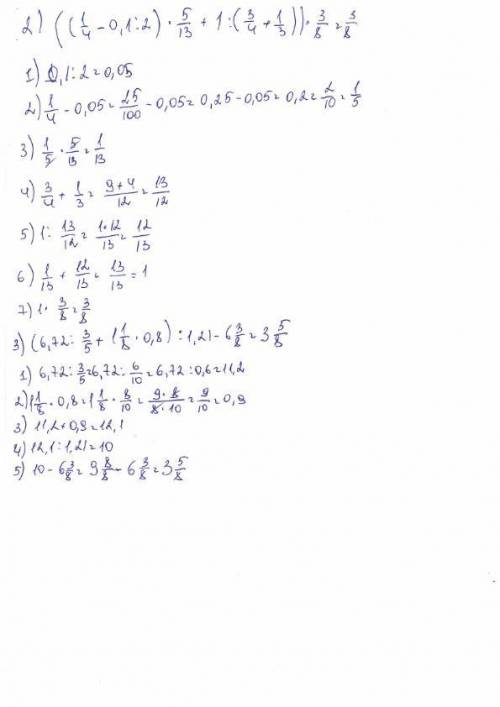 2) ((1/4 - 0,1:2) · 5/13 + 1:(3/4 + 1/3)) · 3/8 = 3/8
1) 0,1:2=0,05
2) 1/4 - 0,05 = 25/100 - 0,05 = 0,25 - 0,05 = 0,2 = 2/10 = 1/5
3) 1/5 · 5/13 = 1/13
4) 3/4 + 1/3 = 9+4/12 = 13/12
5) 1: 13/12 = 1·12/13 = 12/13
6) 1/13 + 12/13 = 13/13 = 1
7) 1 · 3/8 = 3/8
3) (6,72: 3/5 + 1 1/8 · 0,8) : 1,21 - 6 3/8 = 3 5/8
1) 6,72: 3/5 = 6,72: 6/10 = 6,72:0,6=11,2
2) 1 1/8 · 0,8 = 1 1/8 · 8/10 = 9·8/8·10 = 9/10 = 0,9
3) 11,2+0,9=12,1
4) 12,1:1,21=10
5) 10 - 6 3/8 = 9 8/8 - 6 3/8 = 3 5/8